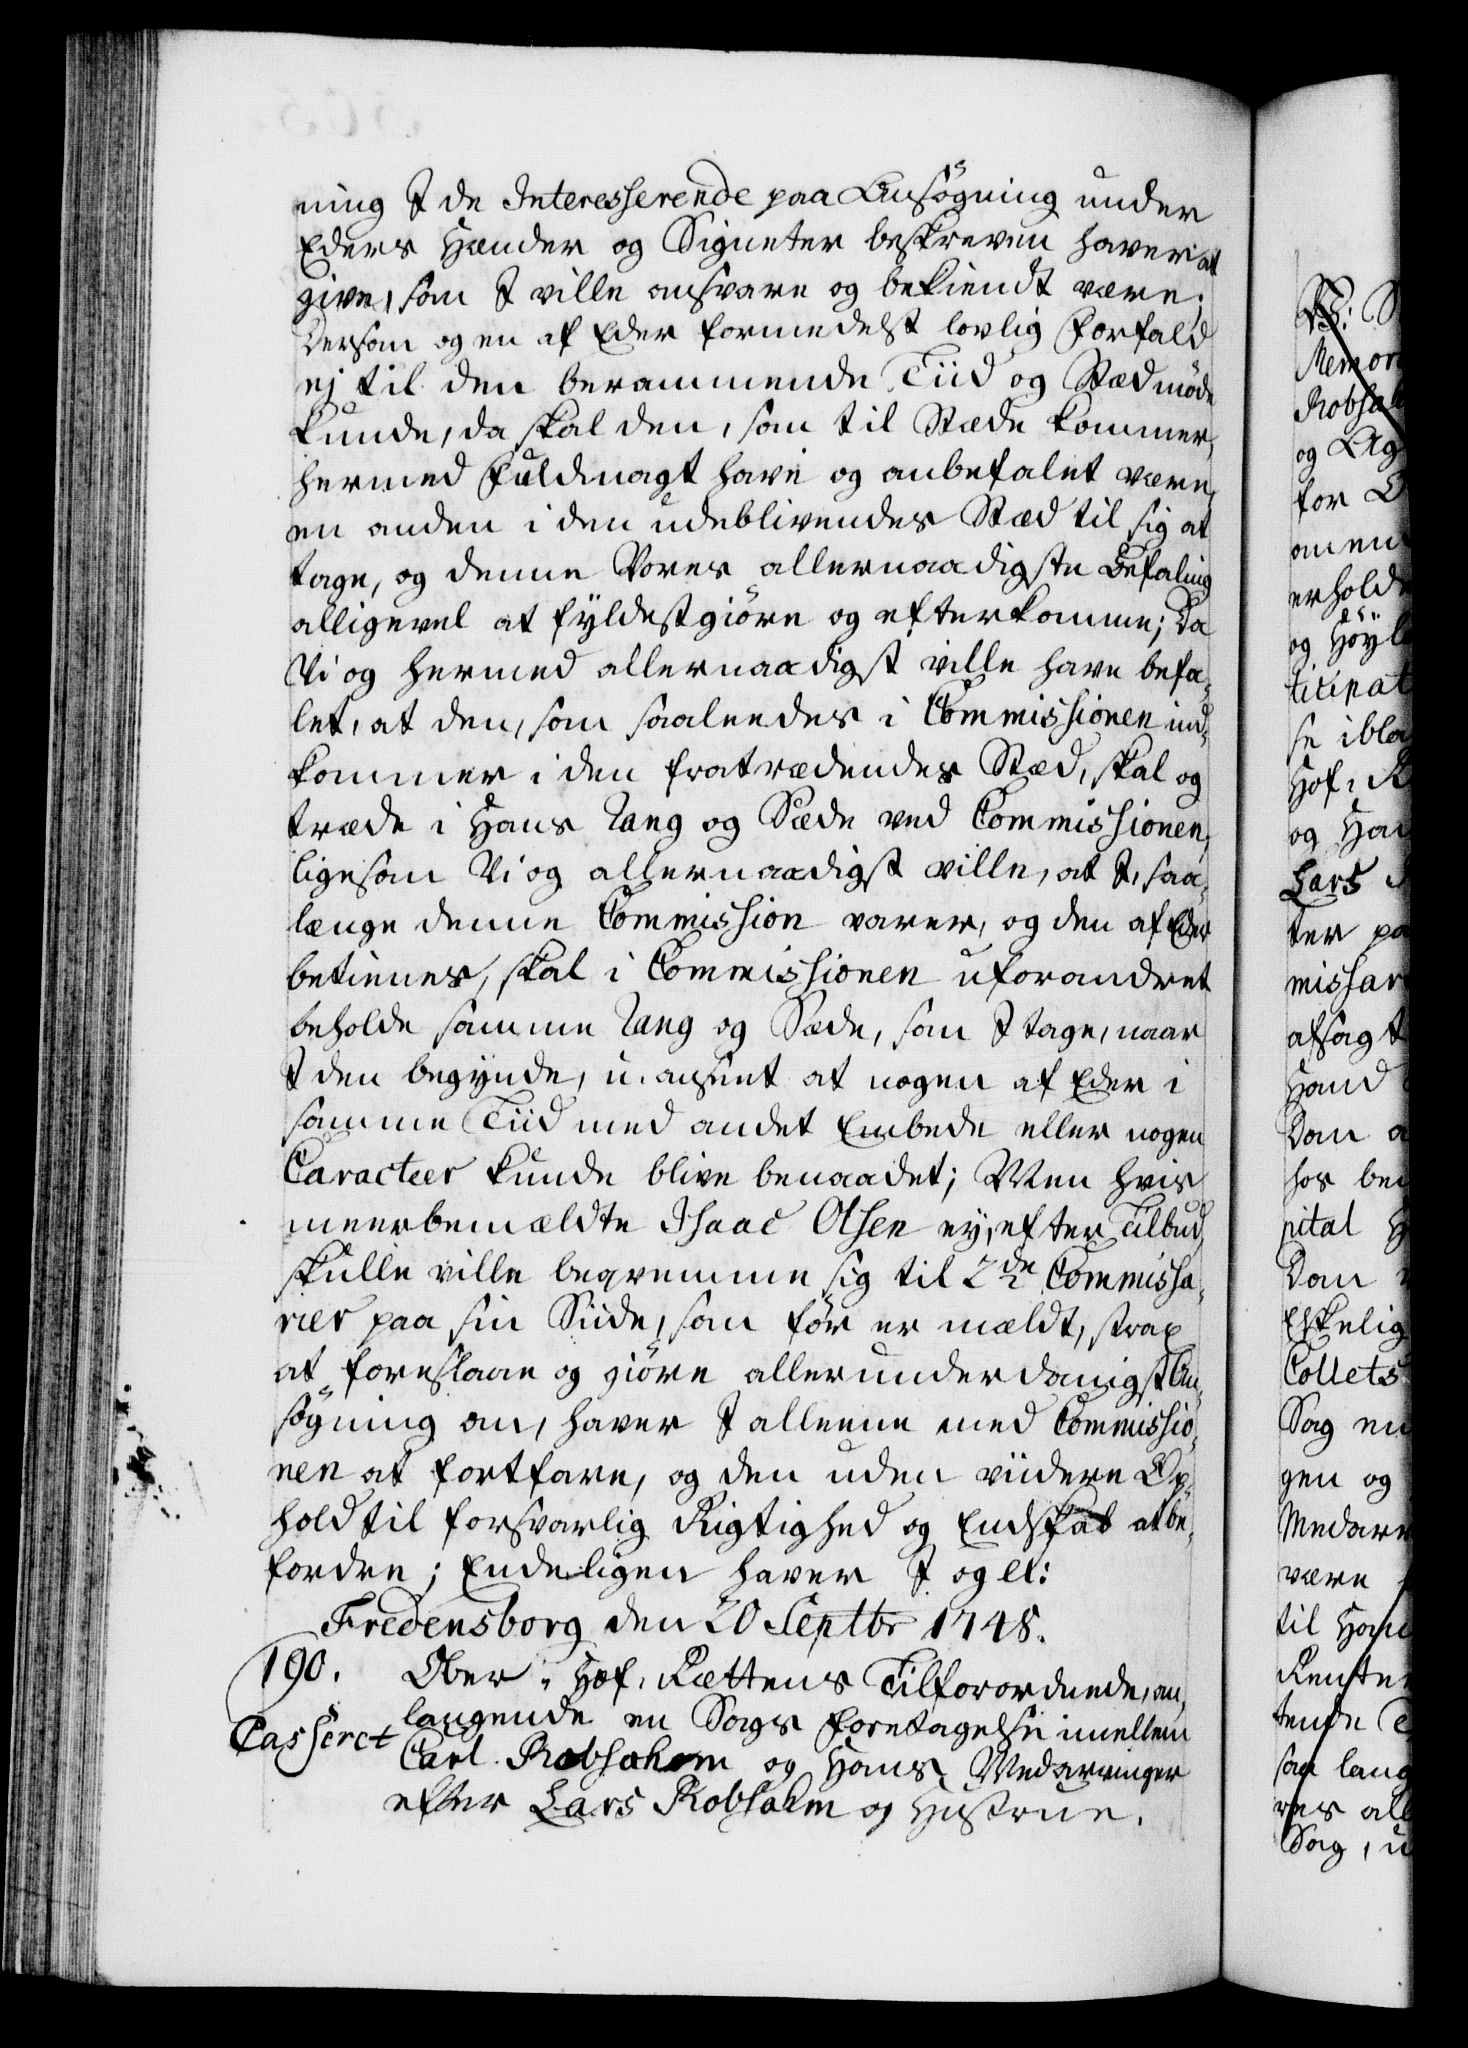 ning I de Interesserende paa Ansøgning under
Eders Hænder og Signeter beskreven haver at
give, som I ville ansvare og bekiendt være.
Dersom og en af Eder formedelst lovlig Forfald
ej til den berammende Tiid og Stæd møde
kunde, da skal den, som til Stæde kommer,
hermed Fuldmagt have og anbefalet være,
en anden i den udeblivendes Stæd til sig at
tage, og denne Vores allernaadigste Befaling
alligevel at fyldestgiøre og efterkomme; Da
Vi og hermed allernaadigst ville have befa-
let, at den, som saaleedes i Commissionen ind-
kommer i den fratrædendes Stæd, skal og
træde i Hans Rang og Sæde ved Commissionen,
ligesom Vi og allernaadigst ville, at I, saa-
længe denne Commission varer, og den af Eder
betienes, skal i Commissionen uforandret
beholde samme Rang og Sæde, som I tage, naar
I den begynde, u-anseet at nogen af Eder i
samme Tiid med andet Embede eller nogen
Caracteer kunde blive benaadet; Men hvis
meerbemældte Isaac Olsen ey, efter Tilbud,
skulle ville beqvemme sig til 2de Commissa-
rier paa sin Siide, som før er mældt, strax
at foreslaae og giøre allerunderdanigst An-
søgning om, haver I alleene med Commissio-
nen at fortfare, og den uden viidere Op-
hold til forsvarlig Rigtighed og Endskab at be-
fordre; Endeligen haver I og etc:
Fredensborg den 20 Septbr 1748.
190. Ober-Hof-Rættens Tilforordnede, an-
langende en Sags Foretagelse imellem
Casseret
Carl Robsahm og Hans Medarvinger
efter Lars Robsahm og Hustrue.
NB: S
Memor
Robsah
og Ag
for
omen
erholde
og Høyl
titipat
se ibla
Hof-R
og Han
Lars
ter pa
missar
afsagt
Hand
Dom a
hos be
pital H
Dom
Eskelig
Collets
Sag en
gen og
Medarv
være
til Ham
Rente
tende
saa lang
res all
Sag, u